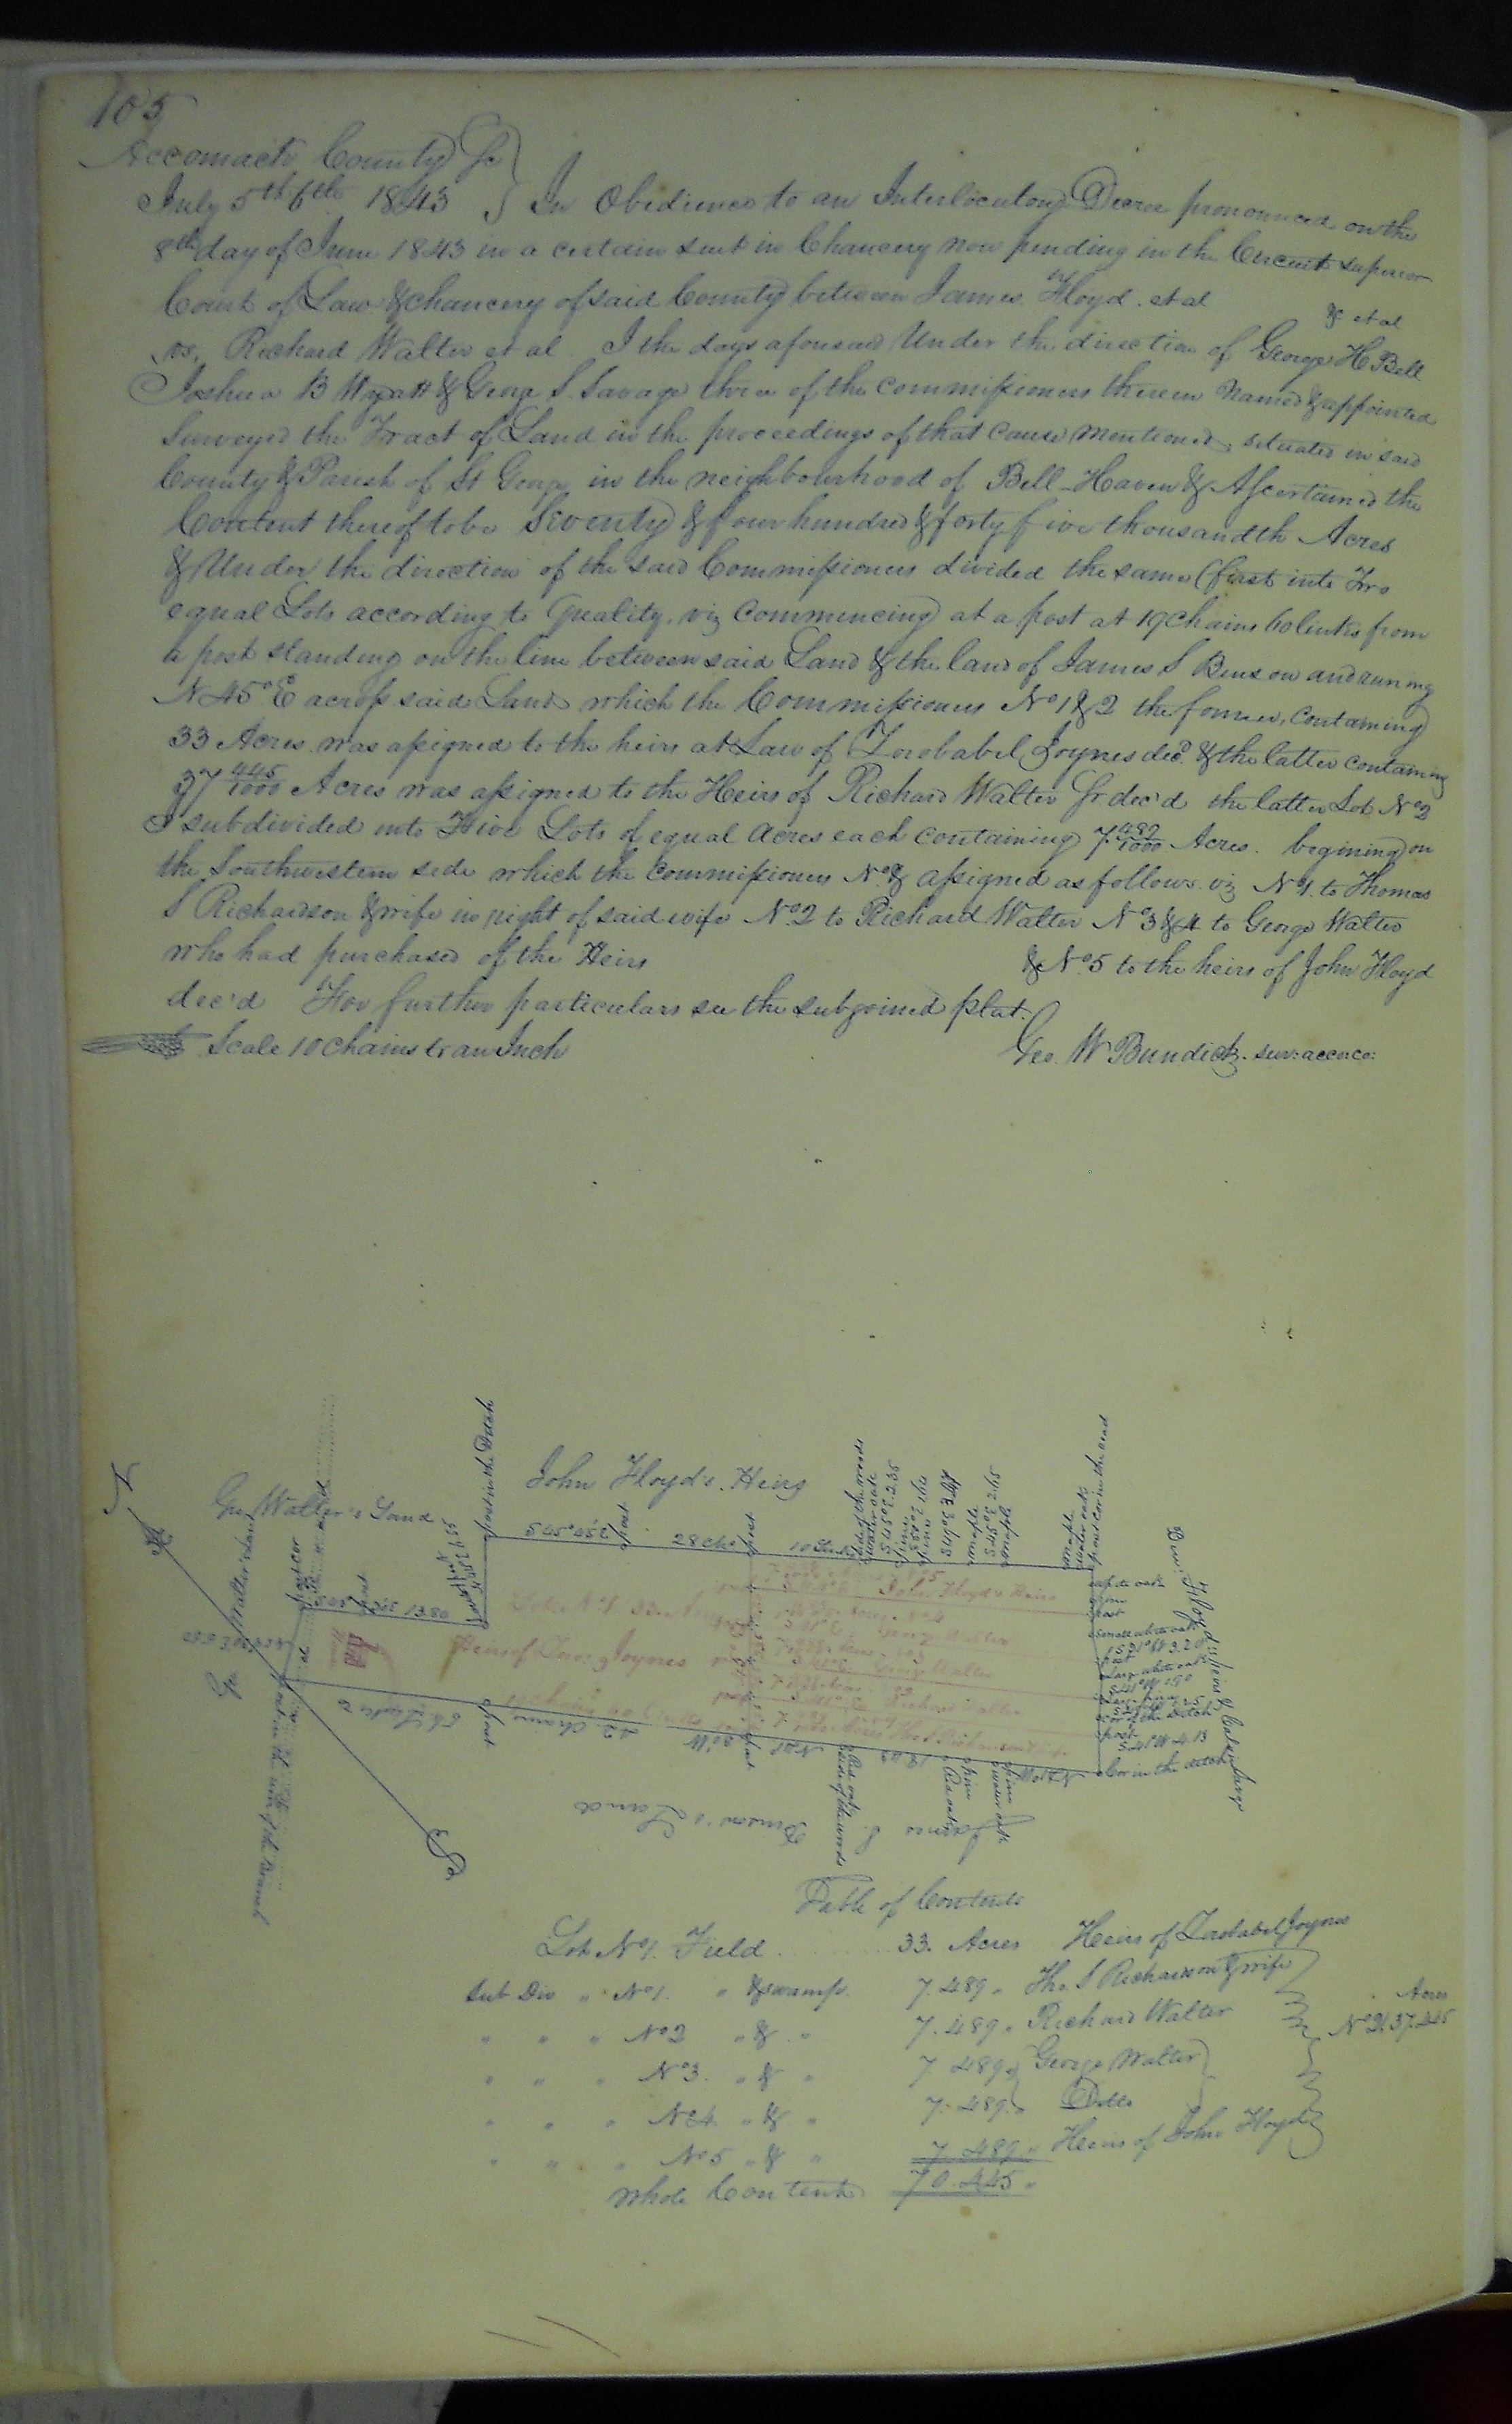 105
Accomack County Sc
July 5th 6th 1843 } In Obedience to an Interlocutory Decree pronounced on the
8th day of June 1843 in a certain suit in Chancery now pending in the Circuit superior
Court of Law & chancery of said County between James Floyd et al
& et al
vs. Richard Walter et al I the days aforesaid Under the direction of George H Bell
Joshua B Wyatt & George S. Savage three of the commissioners therein Named & appointed
Surveyed the Tract of Land in the proceedings of that cause mentioned situated in said
County & Parish of St George in the neighbourhood of Bell-Haven & Ascertained the
Content thereof to be Seventy & four hundred & forty five thousandth Acres
& Under the direction of the said Commissioners divided the same (first into Two
equal Lots according to Quality, viz Commencing at a post at 19 Chains 60 links from
a post standing on the line between said Land & the land of James S Benson and running
N 45° E across said Land which the Commissioners No 1 & 2 the former, containing
33 Acres was assigned to the heirs at Law of Zorobabel Joynes decd. & the latter containing
37 445/1000 Acres was assigned to the Heirs of Richard Walter Sr dec'd the latter Lot No 2
I subdivided into Five Lots of equal acres each containing 7 489/1000 Acres. begining on
the Southwestern side which the commissioners No. & assigned as follows viz No 1. to Thomas
S Richardson & wife in right of said wife No 2 to Richard Walter No 3 & 4 to George Walter
who had purchased of the Heirs & No. 5 to the heirs of John Floyd
dec'd For further particulars see the subjoined plat.
Scale 10 chains to an Inch
Geo. W Bundick. sur: acco: co:
N
John Floyd's Heirs
Geo Walter's Land
post in the Ditch
S 45° 45' E
post
28 chs
post
10 links
side of the woods
water oak
S 45° E 2.35
pine
pine
maple
S 45° E 2.65
maple
maple
water oak
post cor in the road
post cor
13.80
Lot No 1 33 Acres
Heirs of Zoro Joynes
John Floyd's Heirs
George Walter
George Walter
Richard Walter
post
small white oak
post
large white oak
cor of the Ditch
post
S 41° W 4.13
Cor in the ditch
42 Chains
post
Red oak
side of the woods
pine
Red oak
pine
water oak
James S Benson's Land
S
Table of Contents
Lot No 1. Field 33. Acres Heirs of Zorobabel Joynes
Sub Div " No 1. " & swamp. 7.489 " Tho. S Richardson & wife
" " " No 2 " & " 7.489 " Richard Walter
Acres
No 2. 37.445
" " " No 3. " & " 7.489 " George Walter
" " " No 4 " & " 7.489 " Ditto
" " " No 5 " & " 7.489 " Heirs of John Floyd
whole Content 70.445 "